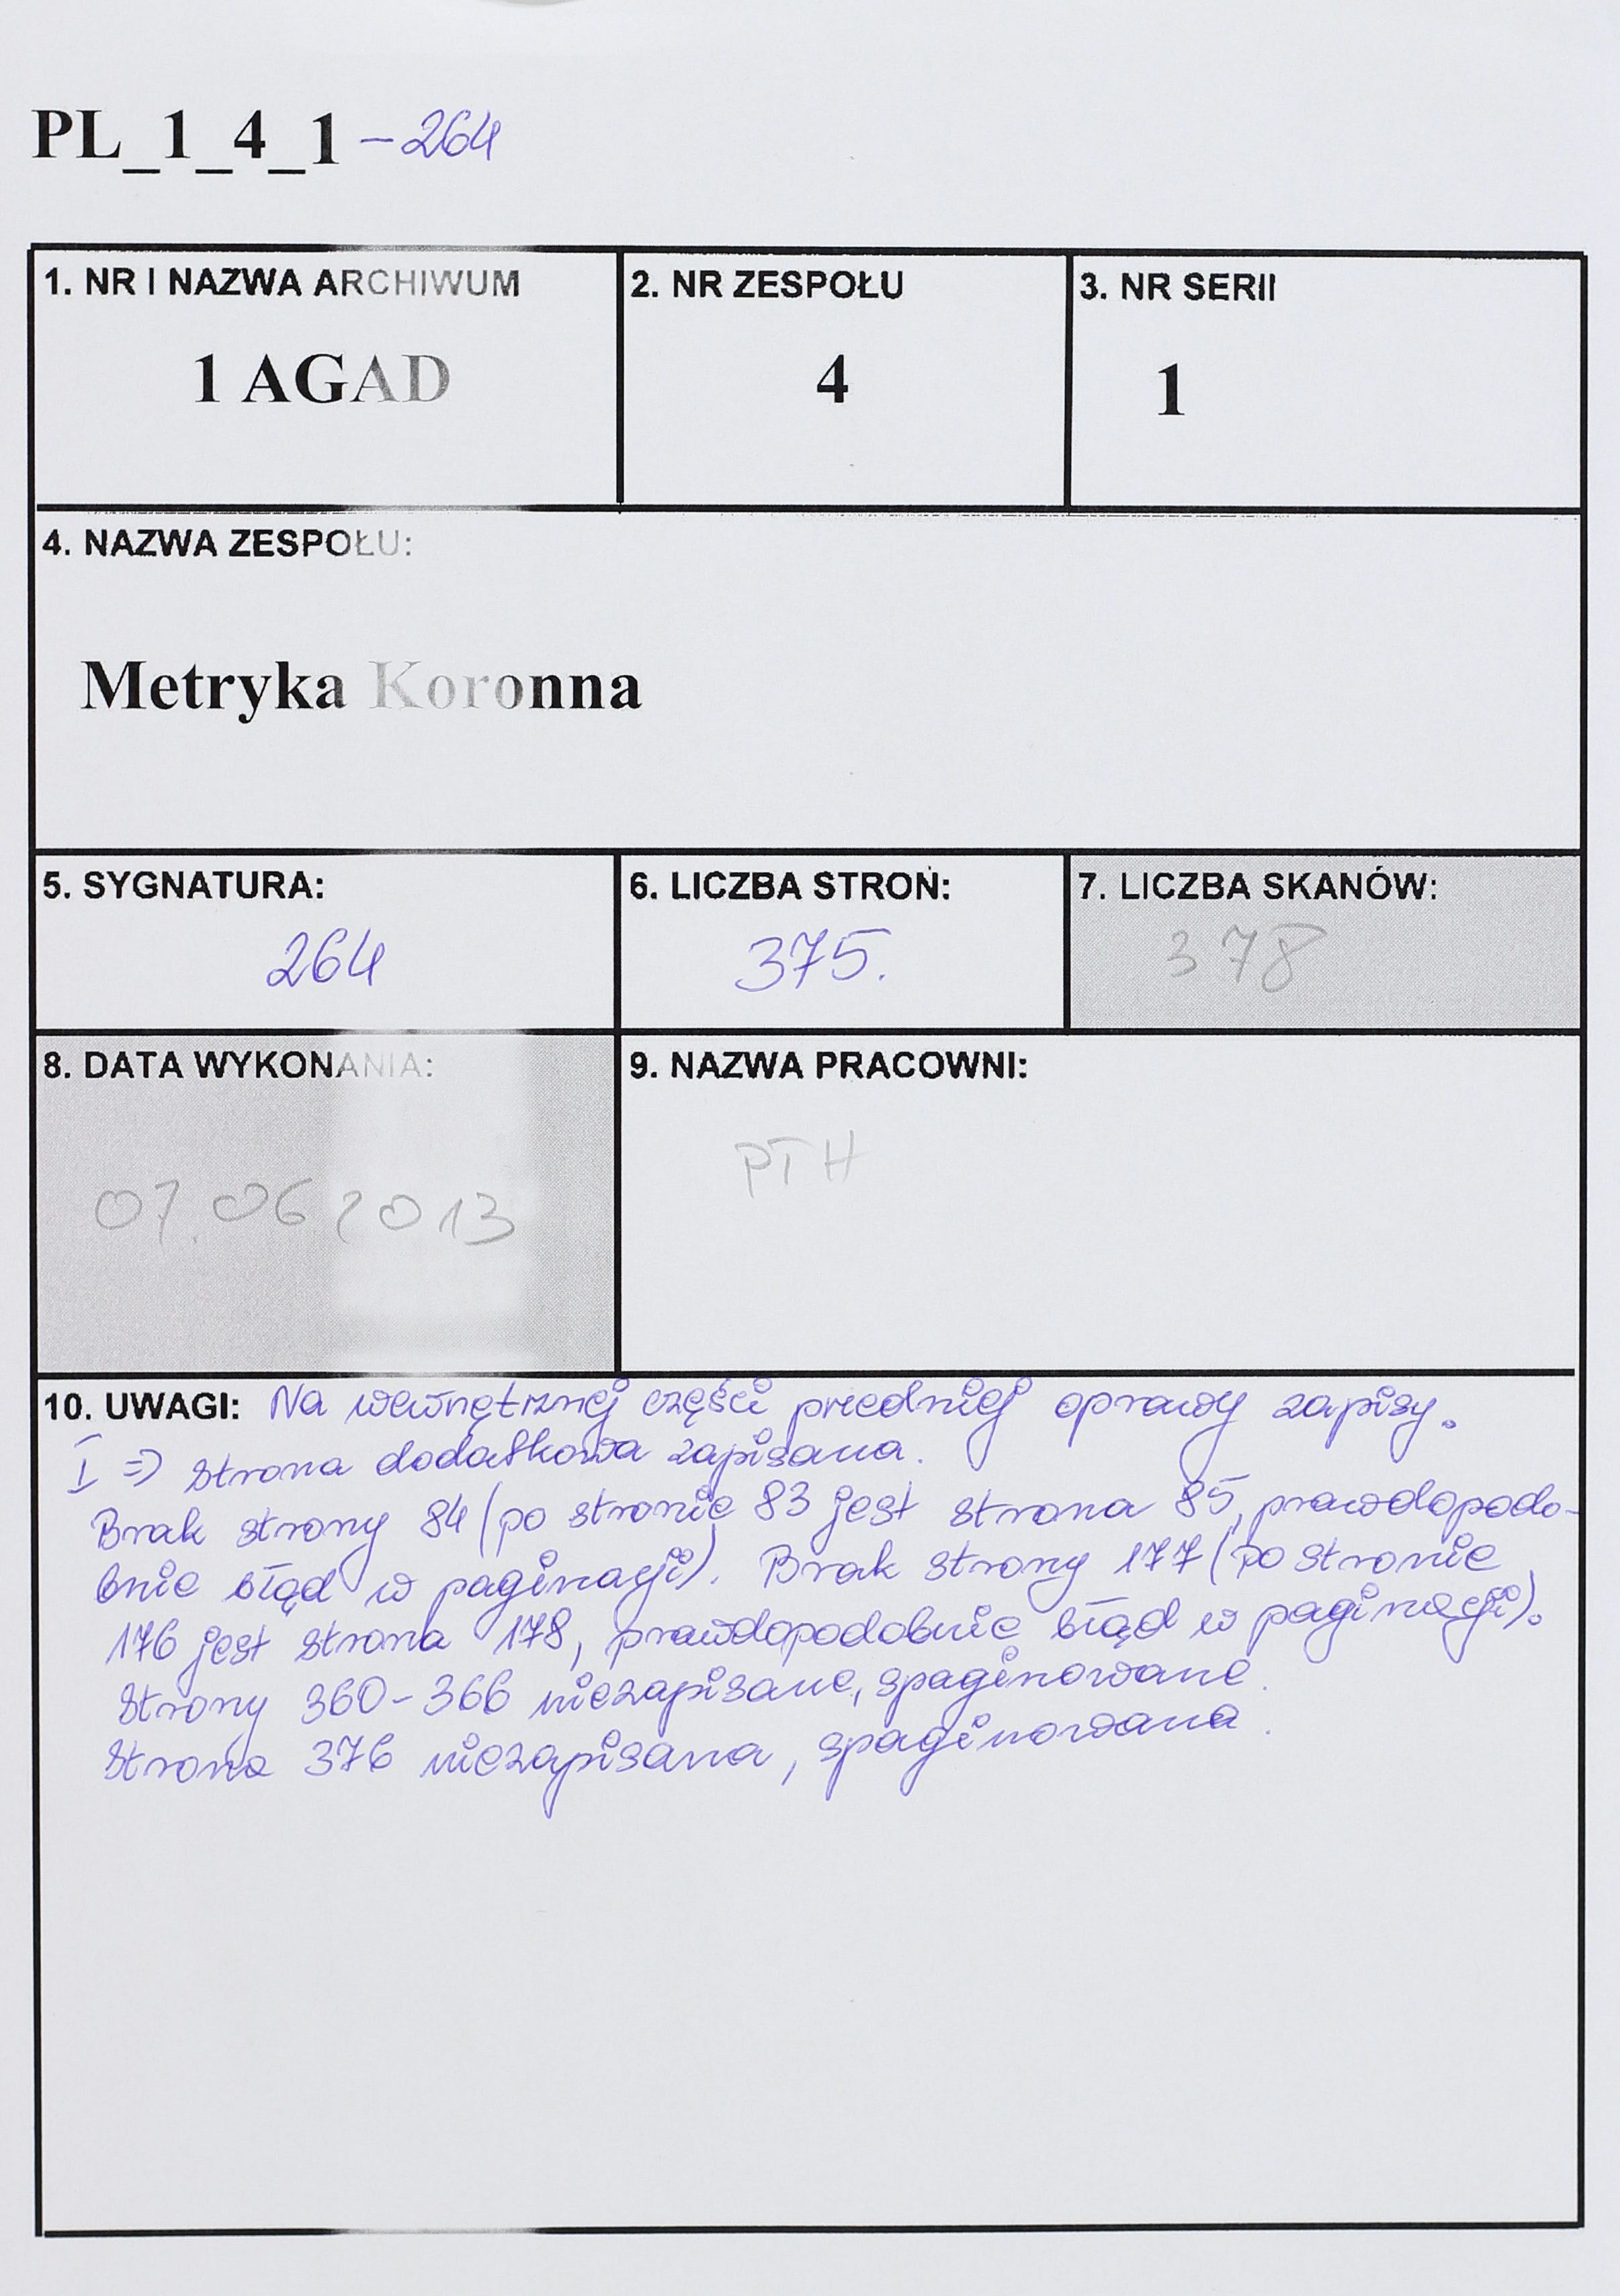 PL_1_4_1 - 264
1. NR I NAZWA ARCHIWUM
1 AGAD
2. NR ZESPOŁU
4
3. NR SERII
1
4. NAZWA ZESPOŁU:
Metryka Koronna
5. SYGNATURA:
264
6. LICZBA STRON:
375.
7. LICZBA SKANÓW:
378
8. DATA WYKONANIA:
07.06.2013
9. NAZWA PRACOWNI:
PTH
10. UWAGI: Na wewnętrznej części przedniej oprawy zapisy.
I => strona dodatkowa zapisana.
Brak strony 84 (po stronie 83 jest strona 85, prawdopodo-
bnie błąd w paginacji). Brak strony 177 (po stronie
176 jest strona 178, prawdopodobnie błąd w paginacji).
Strony 360-366 niezapisane, spaginowane.
Strona 376 niezapisana, spaginowana.